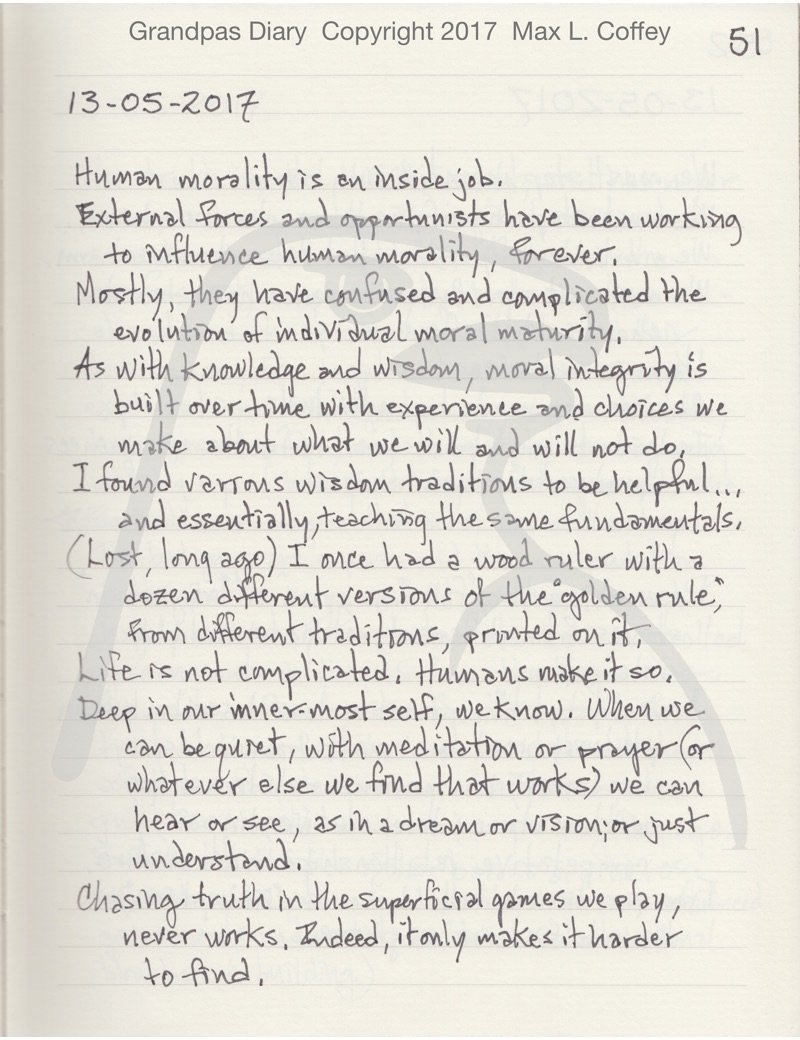 Grandpas Diary Copyright 2017 Max L. Coffey
51
13-05-2017
Human morality is an inside job.
External forces and opportunists have been working
to influence human morality, forever.
Mostly, they have confused and complicated the
evolution of individual moral maturity.
As with knowledge and wisdom, moral integrity is
built over time with experience and choices we
make about what we will and will not do.
I found various wisdom traditions to be helpful...
and essentially, teaching the same fundamentals.
(Lost, long ago) I once had a wood ruler with a
dozen different versions of the "golden rule",
from different traditions, printed on it.
Life is not complicated. Humans make it so.
Deep in our inner-most self, we know. When we
can be quiet, with meditation or prayer (or
whatever else we find that works) we can
hear or see, as in a dream or vision; or just
understand.
Chasing truth in the superficial games we play,
never works. Indeed, it only makes it harder
to find.